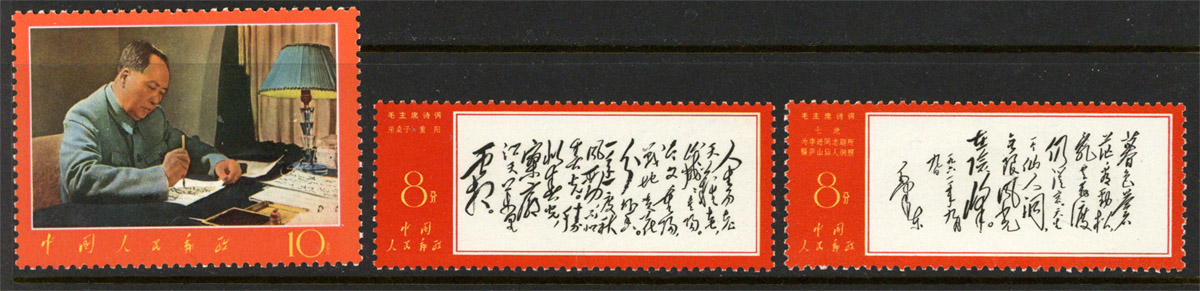 中国人民邮政
10分
毛主席诗词
采桑子·重阳
8分
中国
人民邮政
人生易老
天难老
岁岁重阳
今又重阳
战地黄花
分外香
一年一度秋
风劲不似
春光胜
似春光
寥廓
江天万里
霜
毛主席诗词
七绝
为李进同志题所
摄庐山仙人洞照
8分
中国
人民邮政
暮色苍
茫看劲松
乱云飞渡
仍从容天生
一个仙人洞
无限风光
在险峰
一九六一年九月
九日
毛泽东